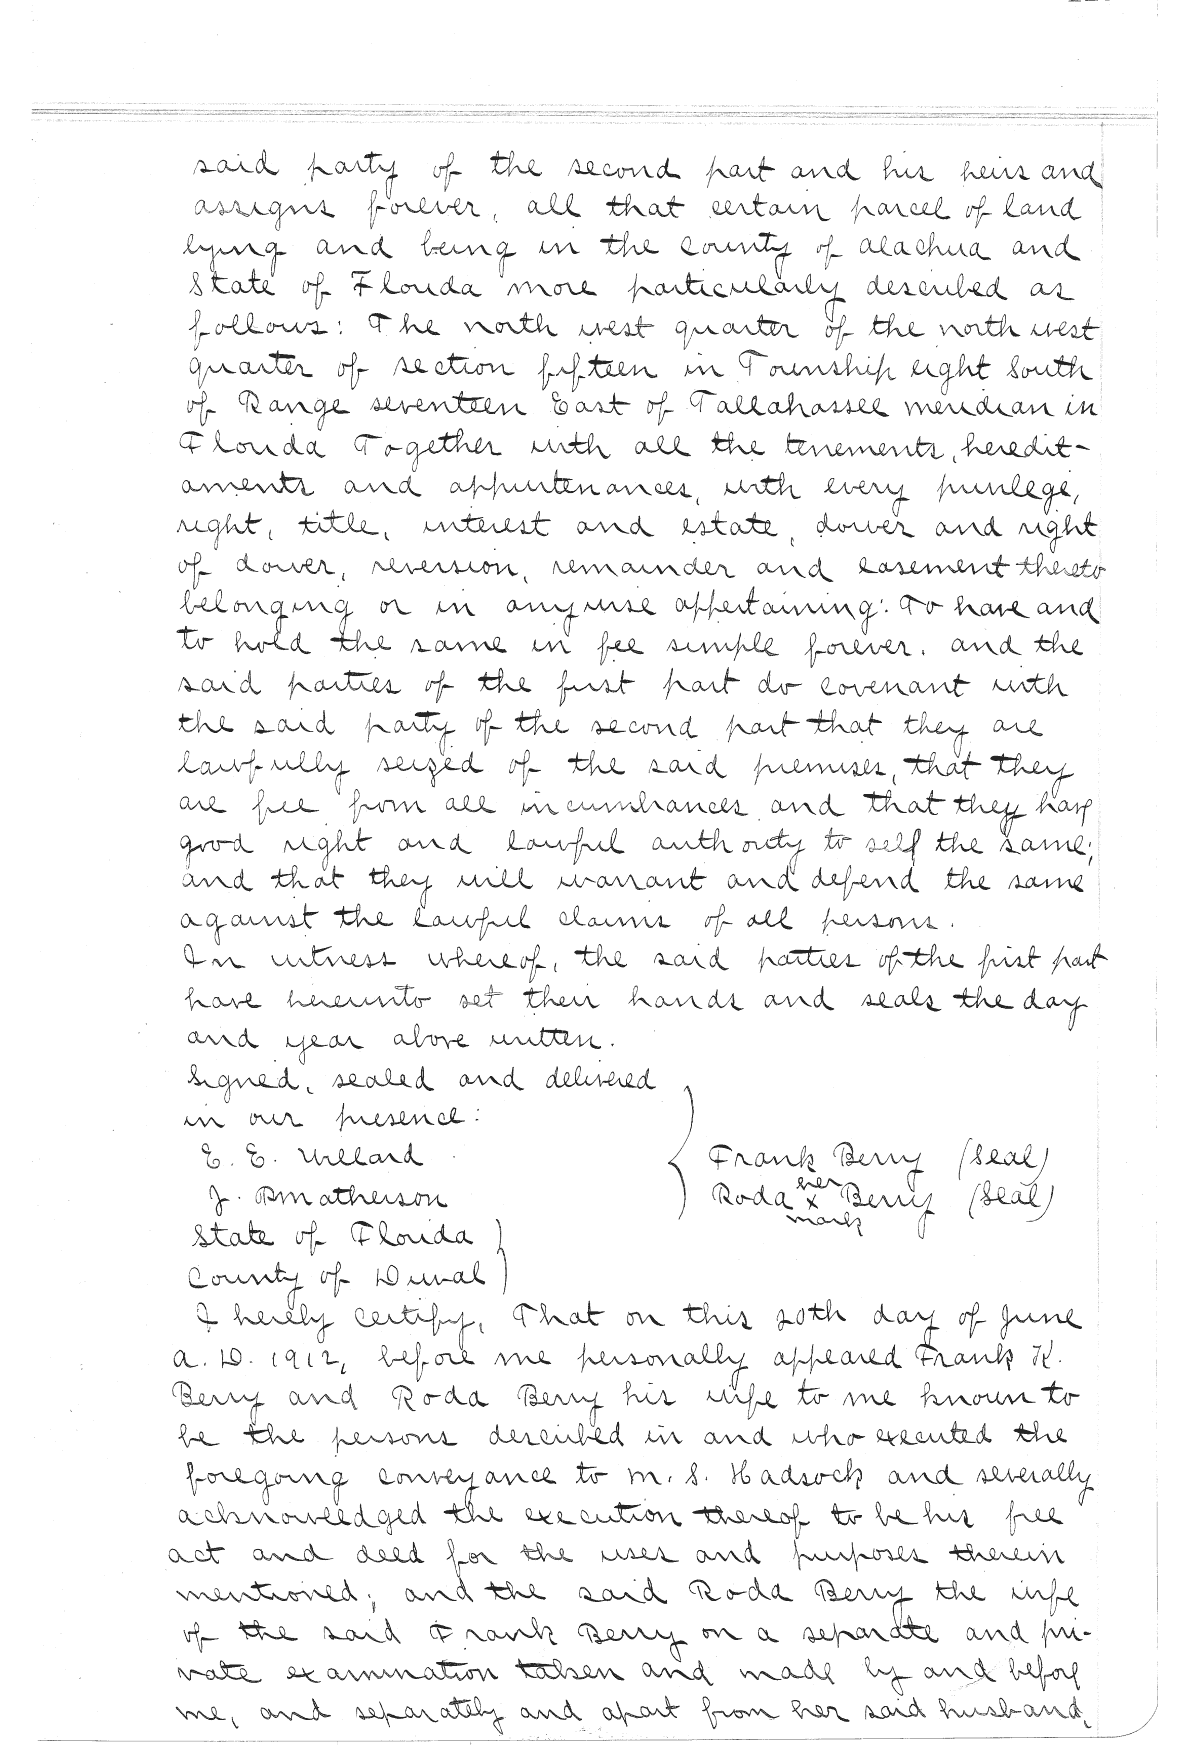 said party of the second part and his heirs and
assigns forever, all that certain parcel of land
lying and being in the County of Alachua and
State of Florida more particularly described as
follows: The north west quarter of the north west
quarter of section fifteen in Township eight South
of Range seventeen East of Tallahassee meridian in
Florida Together with all the tenements, heredit-
aments and appurtenances, with every privilege,
right, title, interest and estate, dower and right
of dower, reversion, remainder and easement thereto
belonging or in anywise appertaining: To have and
to hold the same in fee simple forever. and the
said parties of the first part do covenant with
the said party of the second part that they are
lawfully seized of the said premises, that they
are free from all incumbrances and that they have
good right and lawful authority to sell the same;
and that they will warrant and defend the same
against the lawful claims of all persons.
In witness whereof, the said parties of the first part
have hereunto set their hands and seals the day
and year above written.
Signed, sealed and delivered
in our presence:
E. E. Willard
Frank Berry (Seal)
J. B Matherson
Roda her x mark Berry (Seal)
State of Florida
County of Duval
I hereby certify, That on this 20th day of June
A. D. 1912, before me personally appeared Frank K.
Berry and Roda Berry his wife to me known to
be the persons described in and who executed the
foregoing conveyance to M. S. Hadsock and severally
acknowledged the execution thereof to be his free
act and deed for the uses and purposes therein
mentioned; and the said Roda Berry the wife
of the said Frank Berry on a separate and pri-
vate examination taken and made by and before
me, and separately and apart from her said husband,